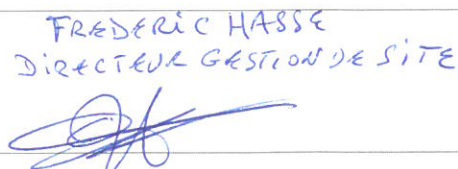 FREDERiC HASSE
DiRECTEUR GESTION DE SiTE